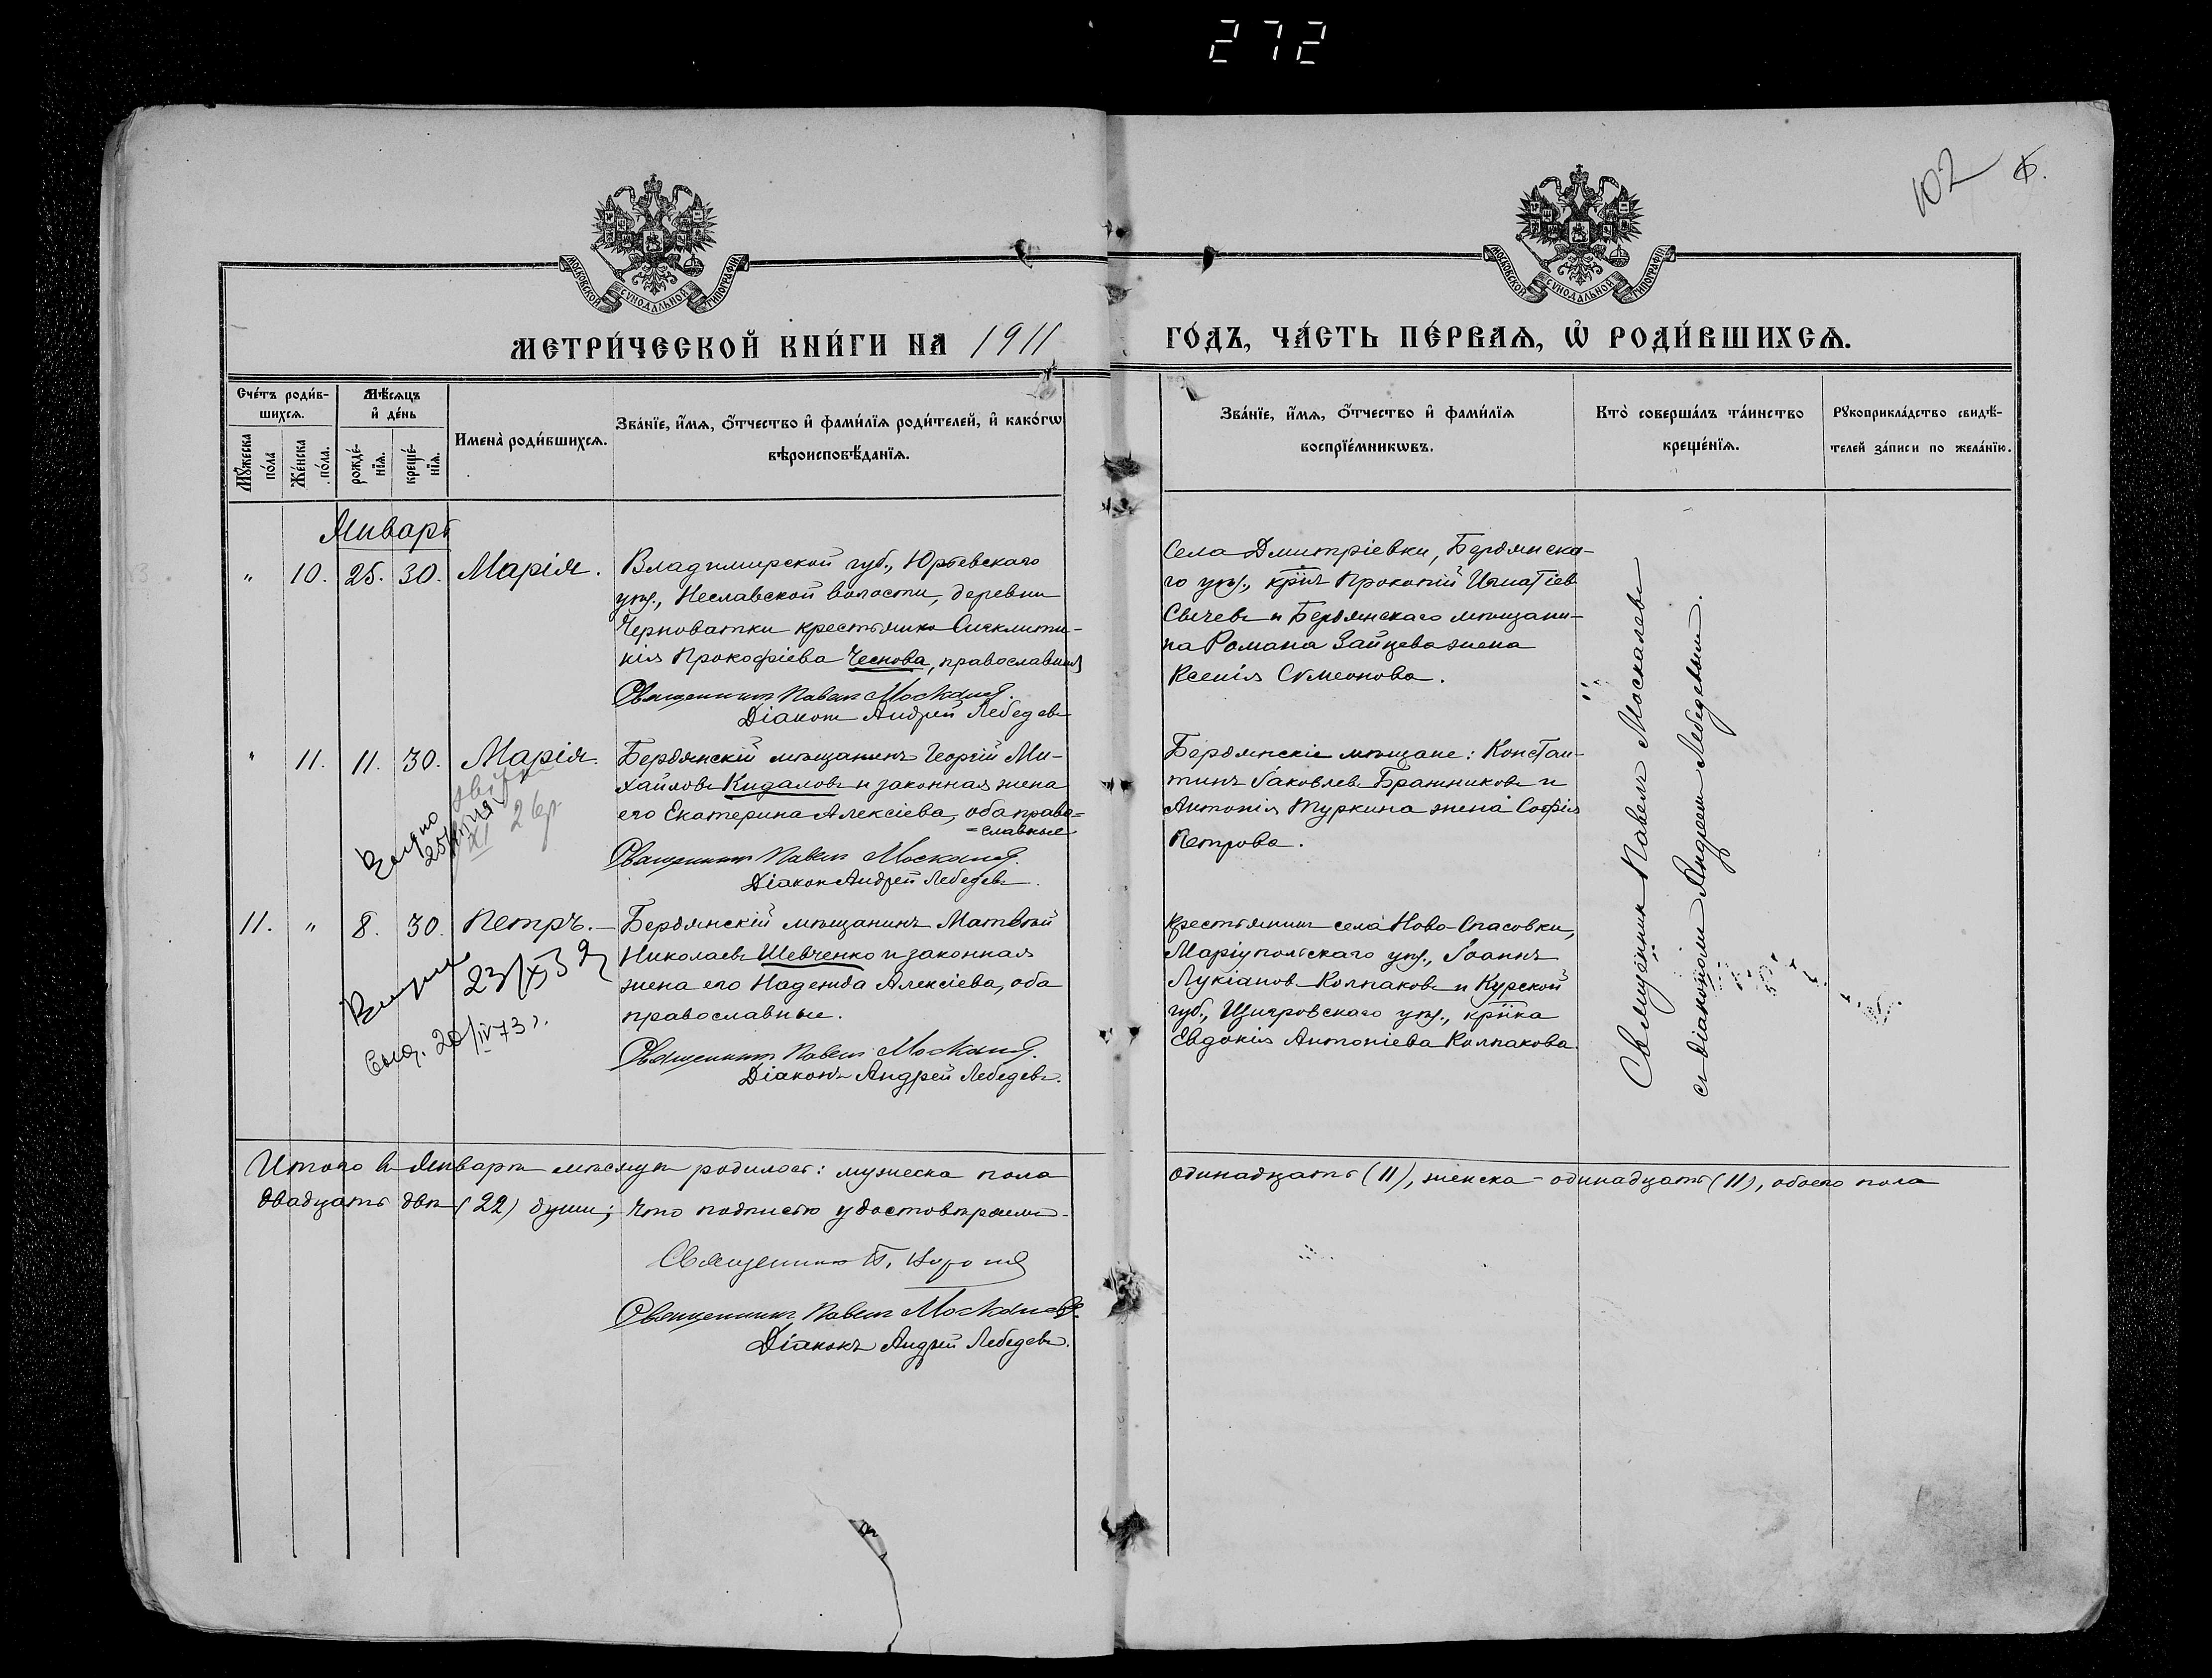 272
102
Ф.
МОСКОВСКОЙ СУНОДАЛЬНОЙ ТИПОГРАФІИ
МОСКОВСКОЙ СУНОДАЛЬНОЙ ТИПОГРАФІИ
МЕТРИ́ЧЕСКОЙ КНИ́ГИ НА 1911
ГО́ДЪ, ЧА́СТЬ ПЕ́РВАѦ, Ѡ҆ РОДИ́ВШИХСѦ.
Сче́тъ роди́в-
шихсѧ.
Мѣ́сѧцъ
и҆ де́нь
Мꙋ́жеска
по́ла
Же́нска
по́ла.
рожде́-
нїѧ.
креще́-
нїѧ.
Имена̀ роди́вшихсѧ.
Зва́нїе, и҆́мѧ, ѻ҆́тчество и҆ фами́лїѧ роди́телей, и҆ како́гѡ
вѣроисповѣ́данїѧ.
Зва́нїе, и҆́мѧ, ѻ҆́тчество и҆ фами́лїѧ
воспрїе́мникѡвъ.
Кто̀ соверша́лъ та́инство
креще́нїѧ.
Рꙋкоприкла́дство свидѣ́-
телей за́писи по жела́нїю.
Январь
" 10. 25. 30. Марія.
Владимирской губ., Юрьевскаго
уѣз., волости, деревни
Черноватки крестьянка Синклити-
кія Прокофіева Чеснова, православная
Священникъ Павелъ Москалевъ.
Діаконъ Андрей Лебедевъ
Села Дмитріевки, Бердянска-
го уѣз., крⷭ҇нъ Прокопій Игнатіевъ
Сычевъ и Бердянскаго мѣщани-
на Романа Зайцева жена
Ксенія Сѵмеонова.
" 11. 11. 30. Марія.
Бердянскій мѣщанинъ Георгій Ми-
хайловъ Кидаловъ и законная жена
его Екатерина Алексіева, оба право=
=славные
Священникъ Павелъ Москалевъ.
Діаконъ Андрей Лебедевъ.
Бердянскіе мѣщане: Констан-
тинъ Іаковлевъ Бражниковъ и
Антонія Туркина жена Софія
Петрова.
11. " 8. 30. Петръ.
23/XI 3
20/IV 73 г.
Бердянскій мѣщанинъ Матвѣй
Николаевъ Шевченко и законная
жена его Надежда Алексіева, оба
православные.
Священникъ Павелъ Москалевъ.
Діаконъ Андрей Лебедевъ.
Крестьянинъ села Ново-Спасовки,
Маріупольскаго уѣз., Іоаннъ
Лукіановъ Колпаковъ и Курской
губ., Щигровскаго уѣз., крⷭ҇нка
Евдокія Антоніева Колпакова.
Священникъ Павелъ Москалевъ
съ діакономъ Андреемъ Лебедевымъ.
Итого въ Январѣ мѣсяцѣ родилось: мужеска пола
одинадцать (11), женска - одинадцать (11), обоего пола
двадцать двѣ (22) души; что подписью удостовѣряемъ.
Священникъ П.
Священникъ Павелъ Москалевъ
Діаконъ Андрей Лебедевъ.